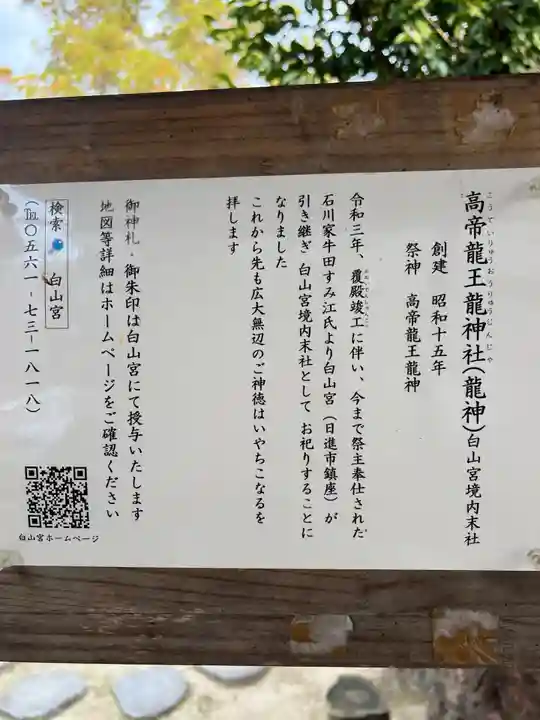 高帝龍王龍神社(龍神)白山宮境内末社
こうていりゅうおうりゅうじんじゃ
創建 昭和十五年
祭神 高帝龍王龍神
令和三年、覆殿竣工に伴い、今まで祭主奉仕された
石川家牛田すみ江氏より白山宮(日進市鎮座)が
引き継ぎ 白山宮境内末社として お祀りすることに
なりました
これから先も広大無辺のご神徳はいやちこなるを
拝します
御神札・御朱印は白山宮にて授与いたします
地図等詳細はホームページをご確認ください
検索 白山宮
(℡〇五六一-七三-一八一八)
白山宮ホームページ